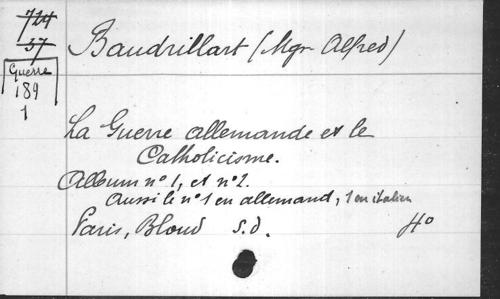 724
37
Guerre
189
1
Baudrillart (Mgr Alfred)
La Guerre allemande et le
Catholicisme.
Album n° 1, et n° 2.
Aussi le n° 1 en allemand, 1 en italien
Paris, Bloud s.d. 4°